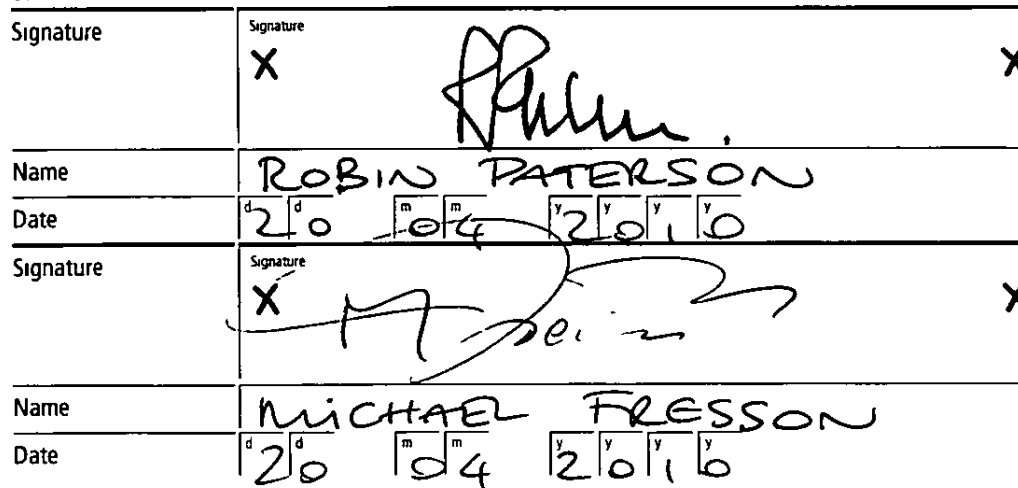 Signature
Signature
X X
Name ROBIN PATERSON
Date d2 d0 m0 m4 y2 y0 y1 y0
Signature
Signature
X X
Name MICHAEL FRESSON
Date d2 d0 m0 m4 y2 y0 y1 y0